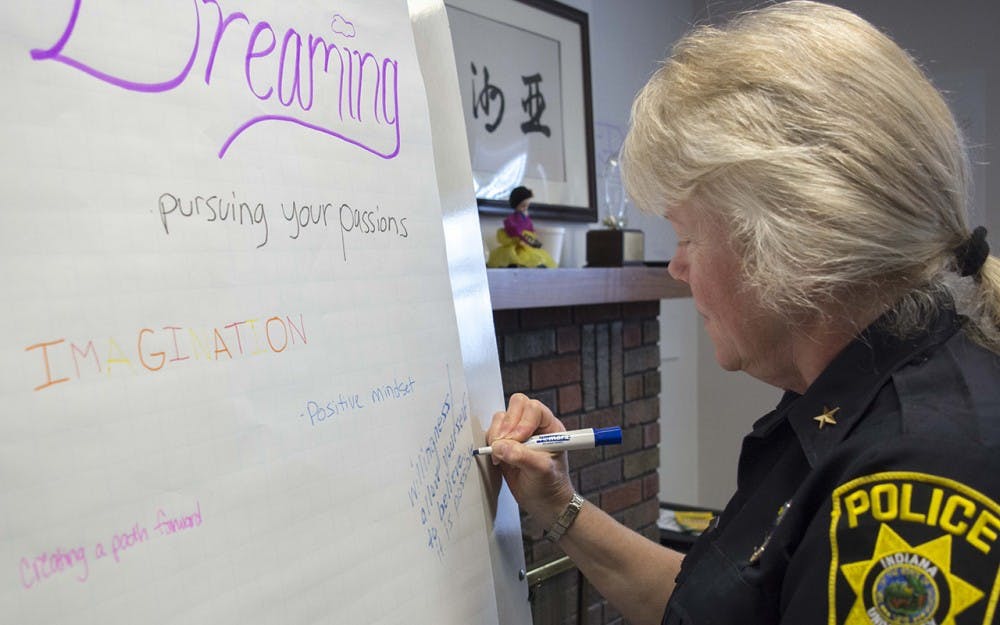 Dreaming
·pursuing your passions
IMAGINATION
·Positive mindset
Willingness/
allow yourself
to believe
it is poss
Creating a path forward
沙亞
POLICE
INDIANA